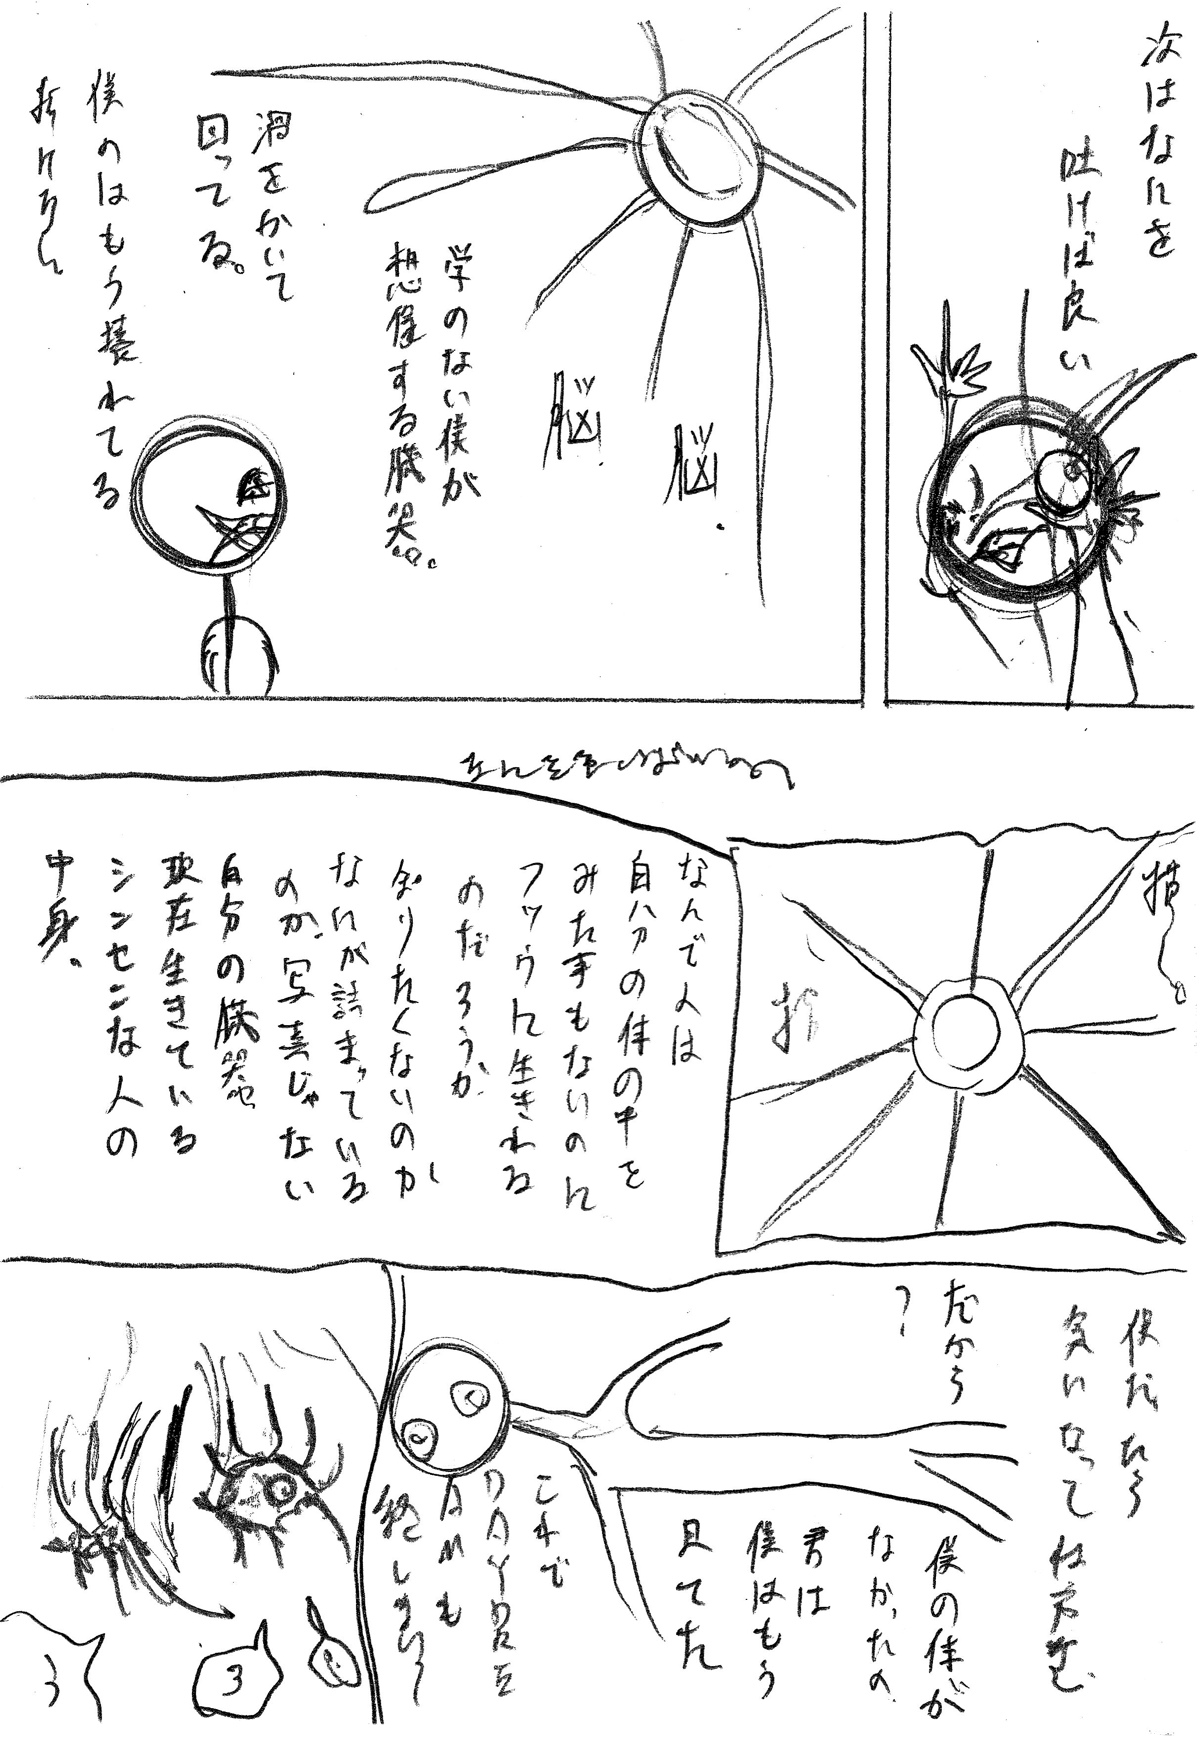 次はなにを
吐けば良い
脳
脳.
学のない僕が
想像する臓器。
渦をかいて
回ってる。
僕のはもう壊れてる
描
なんで人は
自分の体の中を
みた事もないのに
フツウに生きれる
のだろうか
知りたくないのか
なにが詰まっている
のか、写真じゃない
自分の臓器
現在生きている
シンセンな人の
中身。
僕だったら
気になって
だから
?
僕の体が
なかったの
君は
僕はもう
見てた
これで
DAYDRE
AMも
終しまい〜
3
う